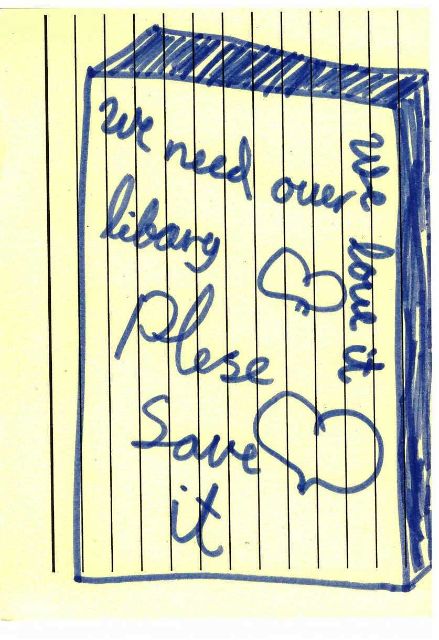 We need ouer
libary
Plese
Save
it
We love it